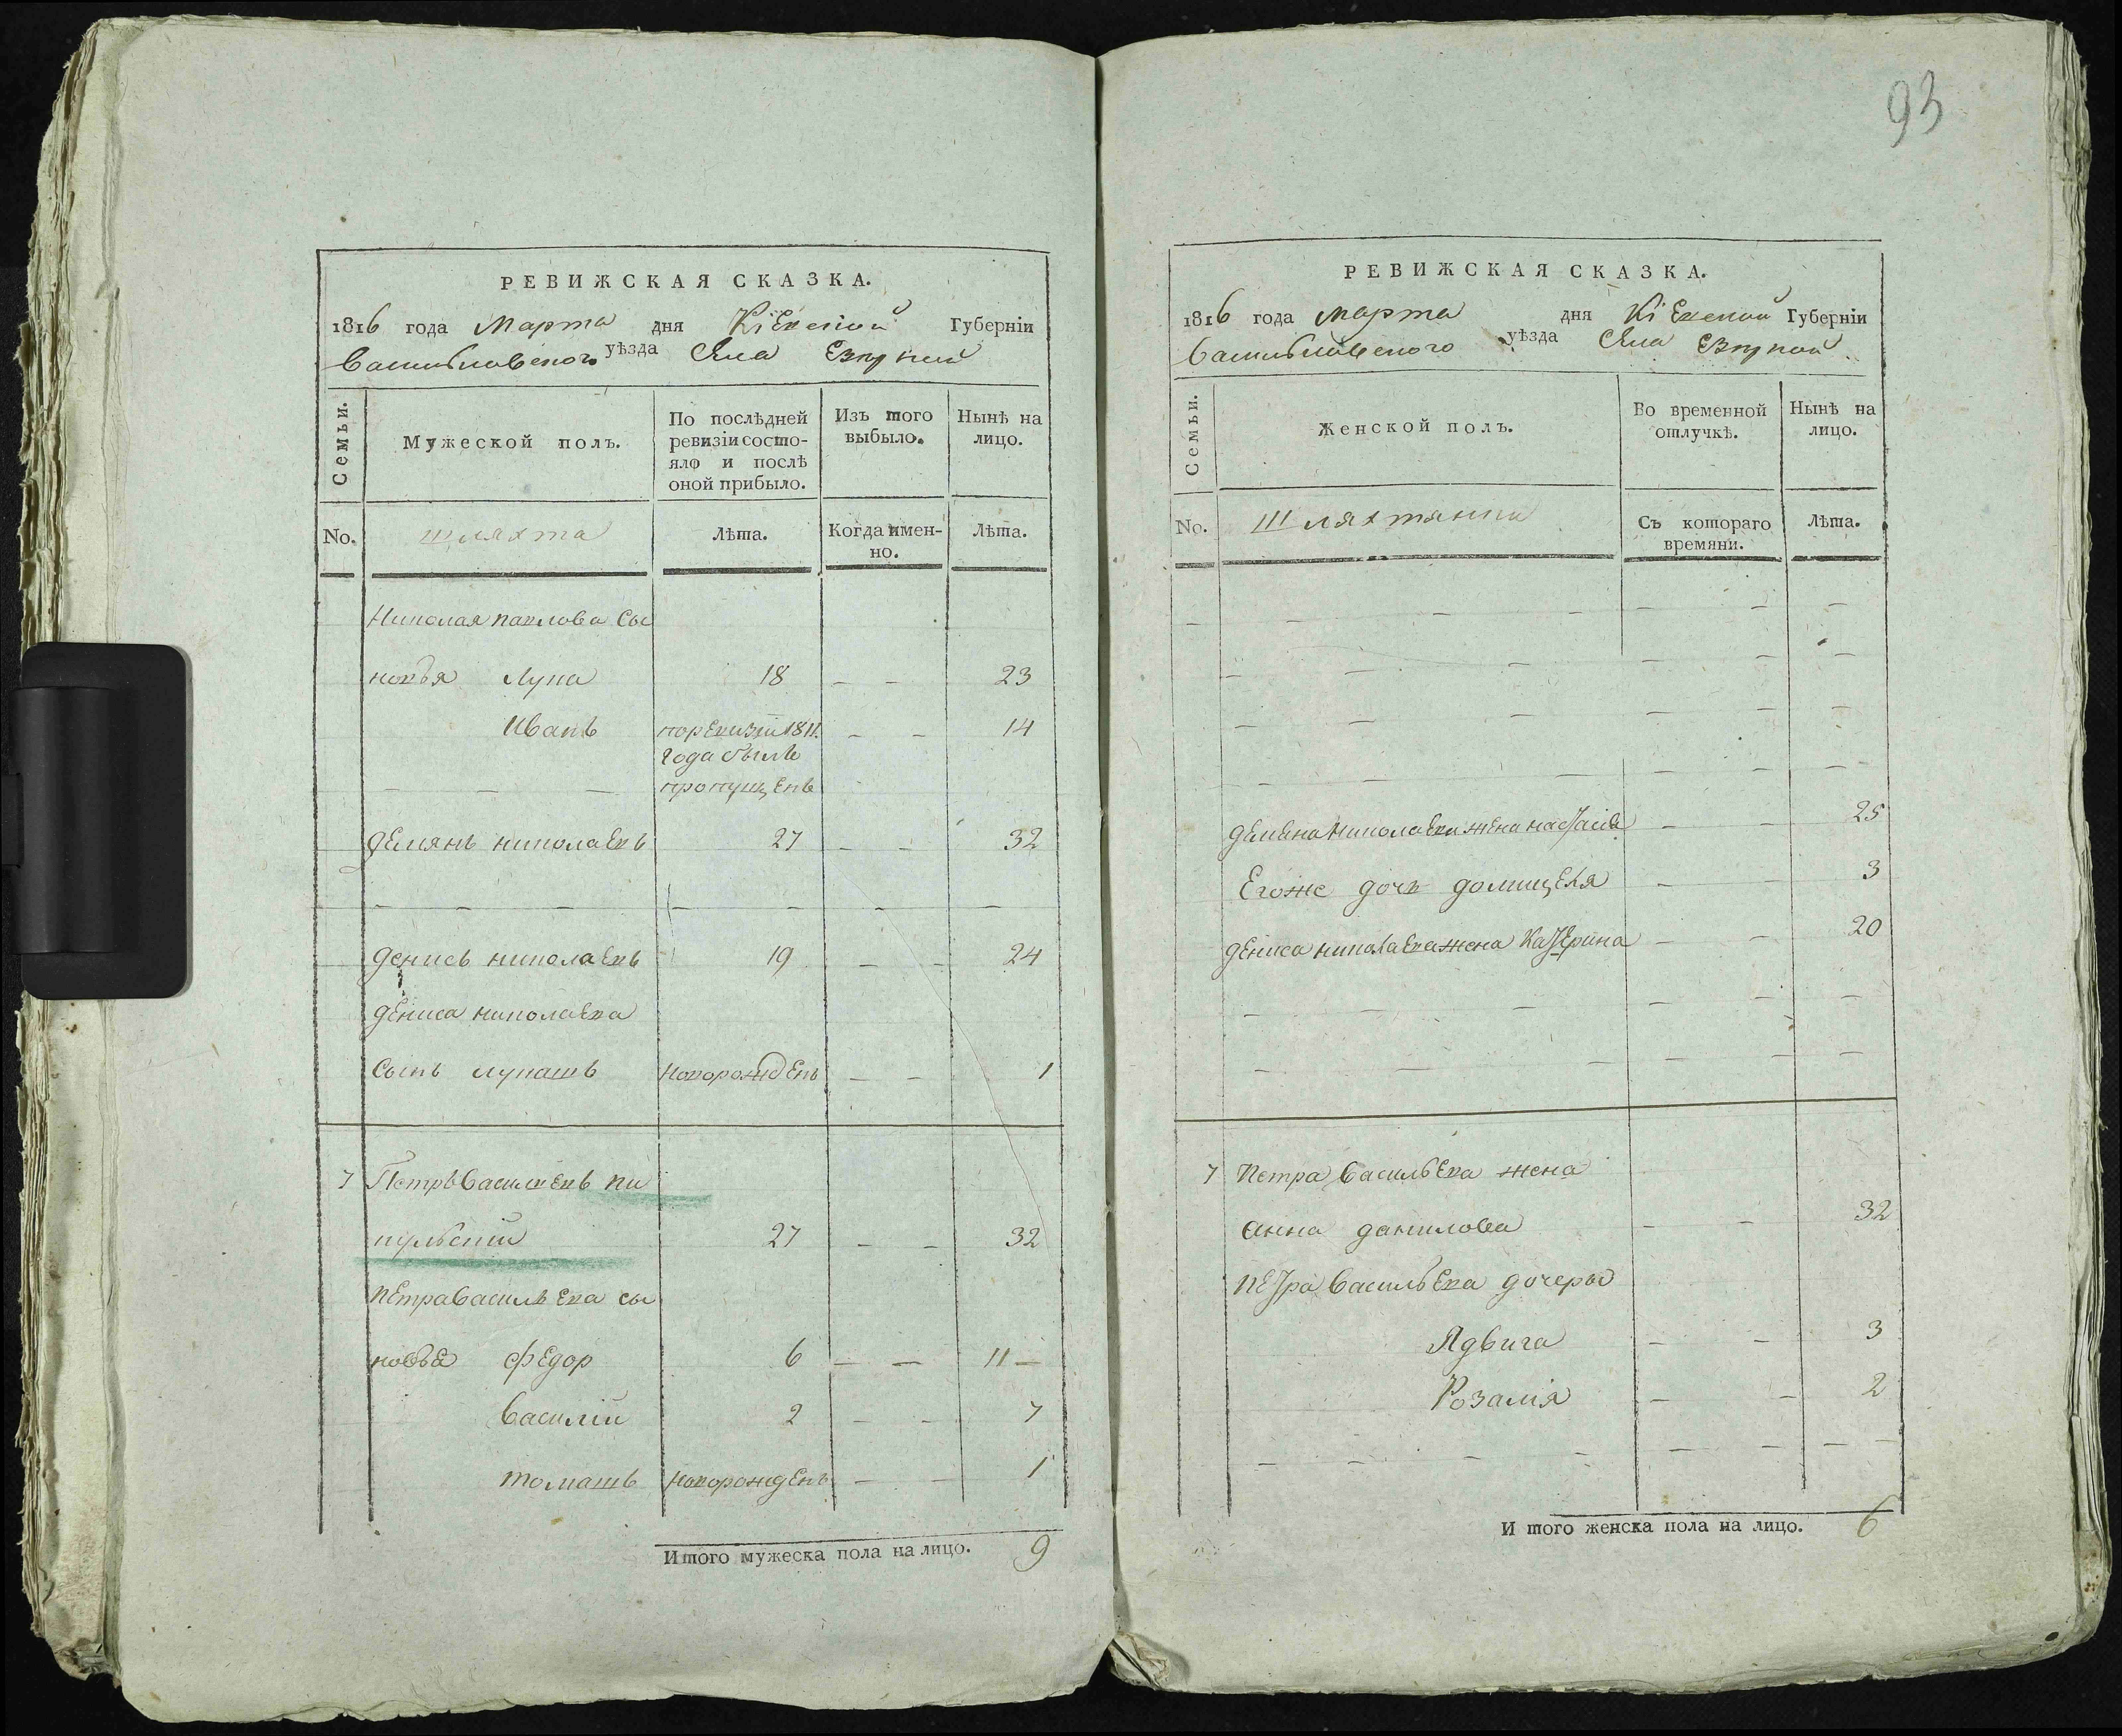 93
РЕВИЖСКАЯ СКАЗКА.
1816 года Марта дня Кіевской Губерніи
Васильковского уѣзда Села
Семьи.
Мужеской полъ.
По послѣдней ревизіи состояло и послѣ оной прибыло.
Изъ того выбыло.
Нынѣ на лицо.
No.
шляхта
Лѣта.
Когда имен-но.
Лѣта.
Николая павлова сы
новья Лука 18 — — 23
Иванъ поревизіи 1811. — — 14
года былъ
— — — пропущенъ
демянъ николаевъ 27 — — 32
— — — — — — —
денисъ николаевъ 19 — — 24
дениса николаева
сынъ лукашъ новорожденъ — — 1
7 Петръ Васильевъ пи
кульскій 27 — — 32
петра Васильева сы
новья федор 6 — — 11 —
василій 2 — — 7
томашъ новорожденъ — — 1
Итого мужеска пола на лицо. 9
РЕВИЖСКАЯ СКАЗКА.
1816 года марта дня Кіевской Губерніи
Васильковского уѣзда Села
Семьи.
Женской полъ.
Во временной отлучкѣ.
Нынѣ на лицо.
No.
Шляхтянки
Съ котораго времяни.
Лѣта.
демяна николаева жена настасія — — 25
Егоже дочь домицеля — — 3
дениса николаева жена катерина — — 20
7 петра васильева жена
анна данилова — — 32
петра васильева дочеры
Ядвига — — 3
Розалія — — 2
Итого женска пола на лицо. 6